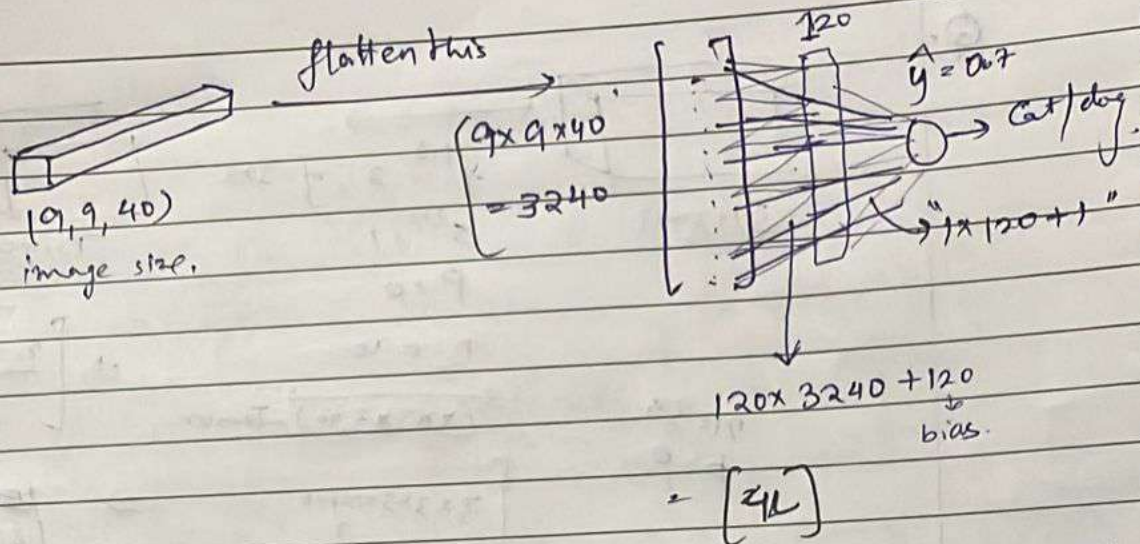 flatten this
(9,9,40)
image size.
9x9x40
= 3240
120
ŷ = 0.7
→ Cat/dog.
"1x120+1"
120x 3240 +120
bias.